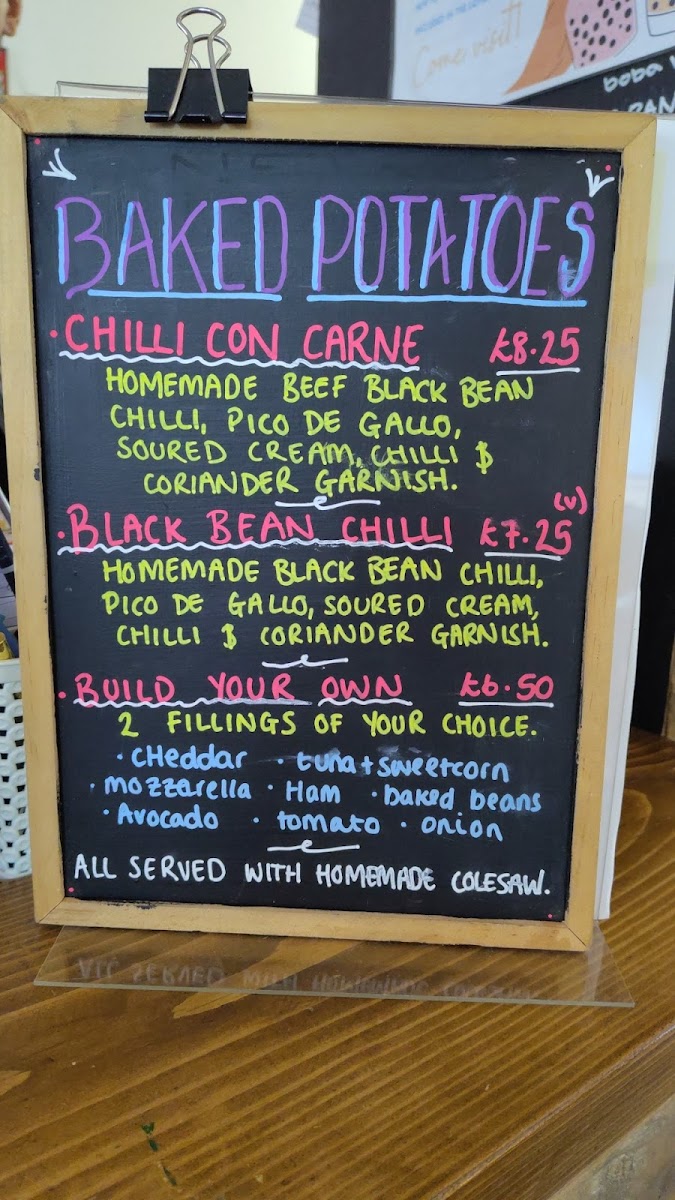 Come visit!
boba
BAKED POTATOES
· CHILLI CON CARNE £8.25
HOMEMADE BEEF BLACK BEAN
CHILLI, PICO DE GALLO,
SOURED CREAM, CHILLI $
CORIANDER GARNISH.
· BLACK BEAN CHILLI £7.25 (v)
HOMEMADE BLACK BEAN CHILLI,
PICO DE GALLO, SOURED CREAM,
CHILLI $ CORIANDER GARNISH.
· BUILD YOUR OWN £6.50
2 FILLINGS OF YOUR CHOICE.
· CHeddar · tuna + sweetcorn
· mozzarella · Ham · baked beans
· Avocado · tomato · onion
ALL SERVED WITH HOMEMADE COLESAW.